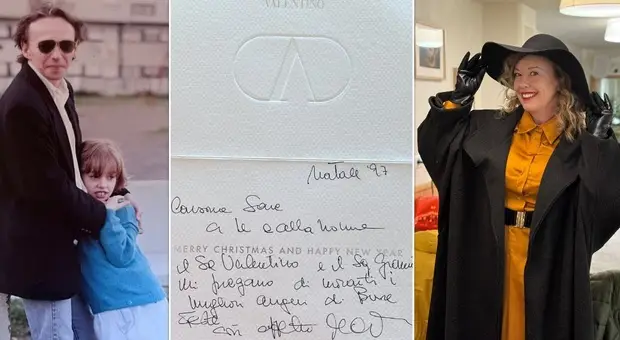 VALENTINO
Natale '97
Carissima Sara
a te e alla nonna
MERRY CHRISTMAS AND HAPPY NEW YEAR
il Sig Valentino e il Sig
mi pregano di inviarti i
migliori auguri di Buone
Feste
con affetto